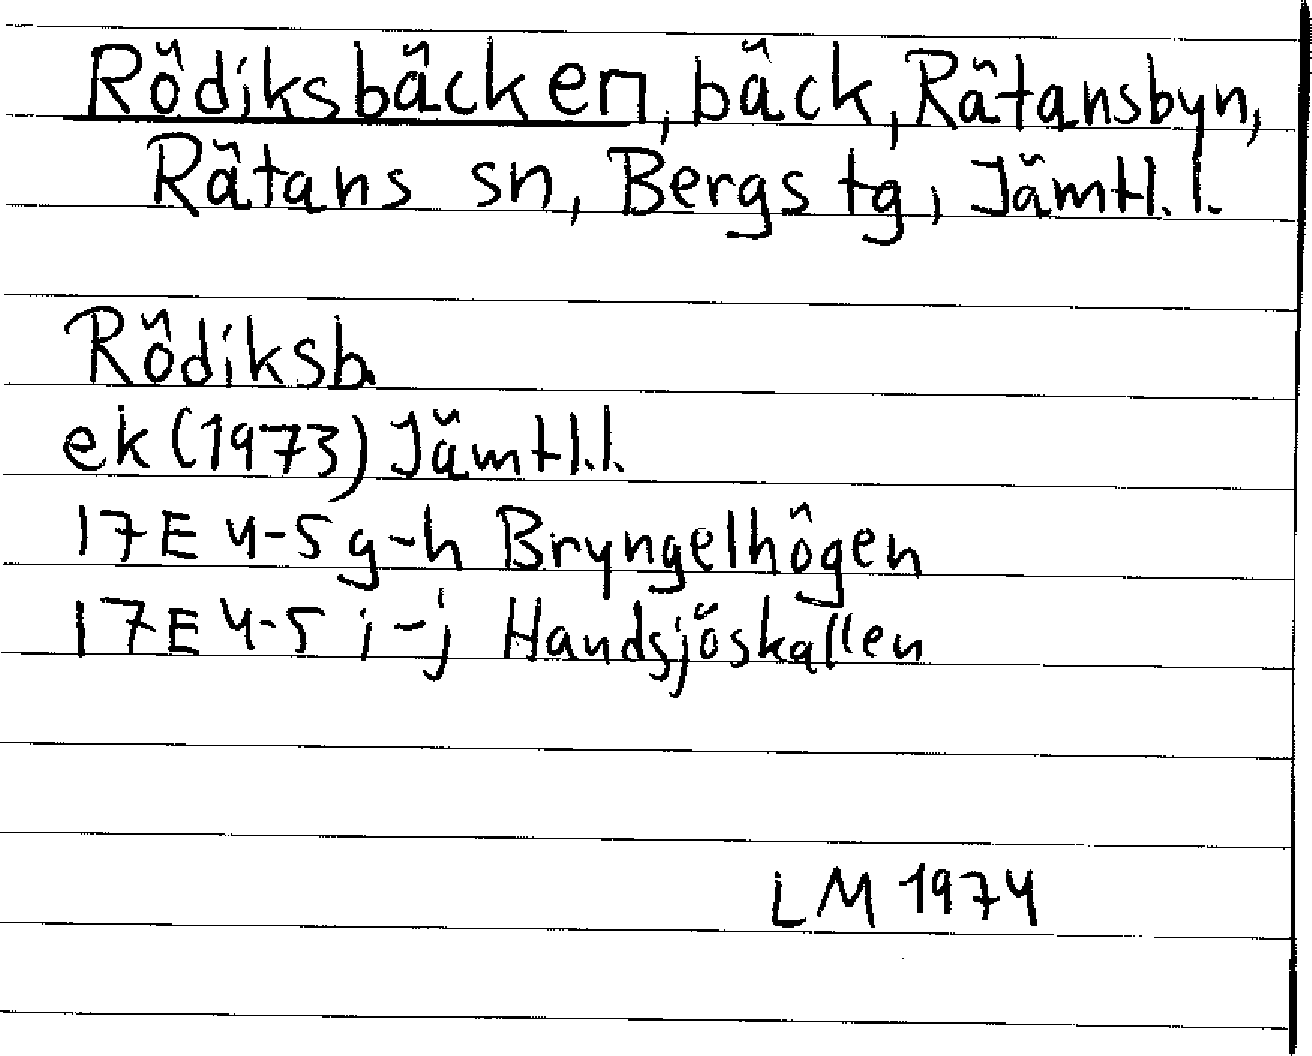 Rödiksbäcken, bäck, Rätansbyn,
Rätans sn, Bergs tg, Jämtl. l.
Rödiksb.
ek (1973) Jämtl.l.
17E 4-5 g-h Bryngelhögen
17E 4-5 i-j Handsjöskallen
LM 1974